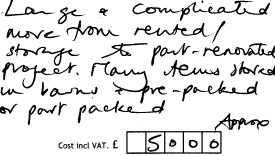 Large & complicated
move from rented/
storage to part-renovated
project. Many items stored
in barns & pre-packed
or part packed
Approx
Cost incl VAT. £ 5000